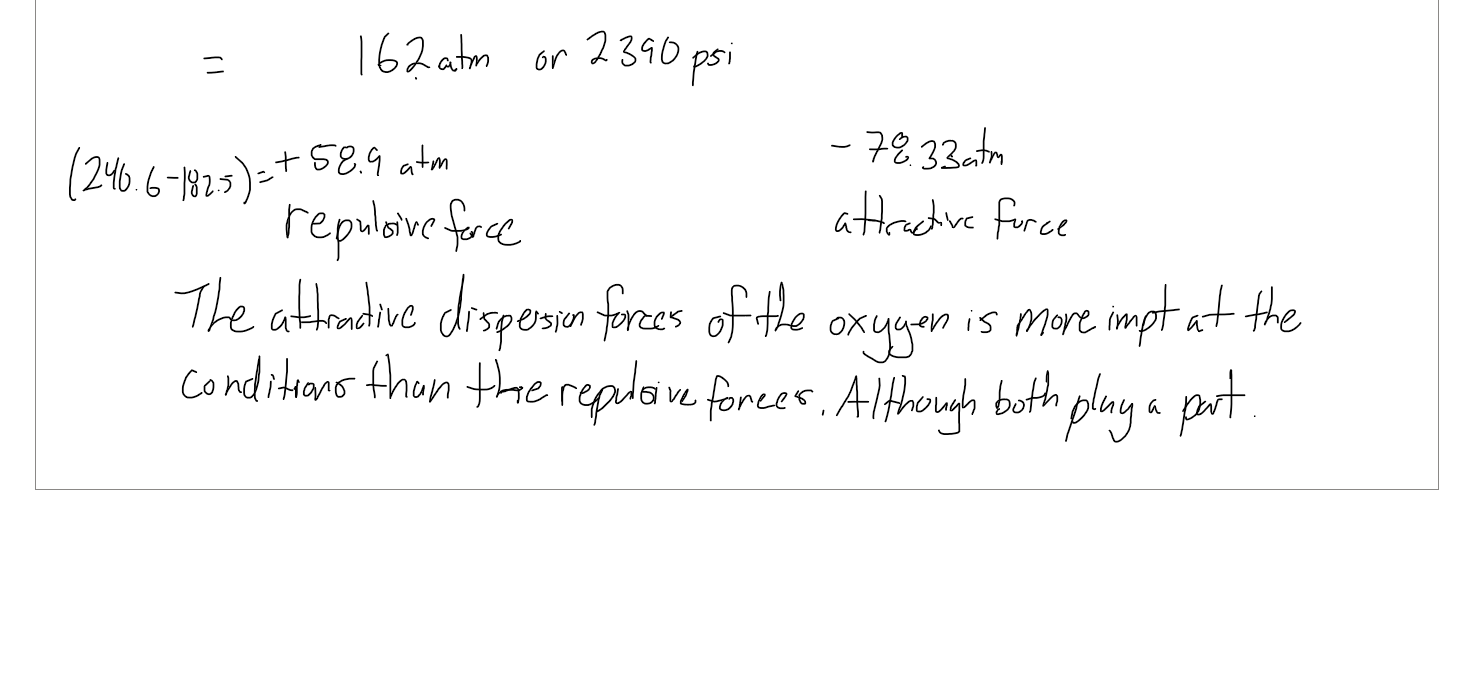 = 162 atm or 2390 psi
(240.6-182.5)=+58.9 atm -78.33atm
repulsive force attractive force
The attractive dispersion forces of the oxygen is more impt at the
conditions than the repulsive forces. Although both play a part.